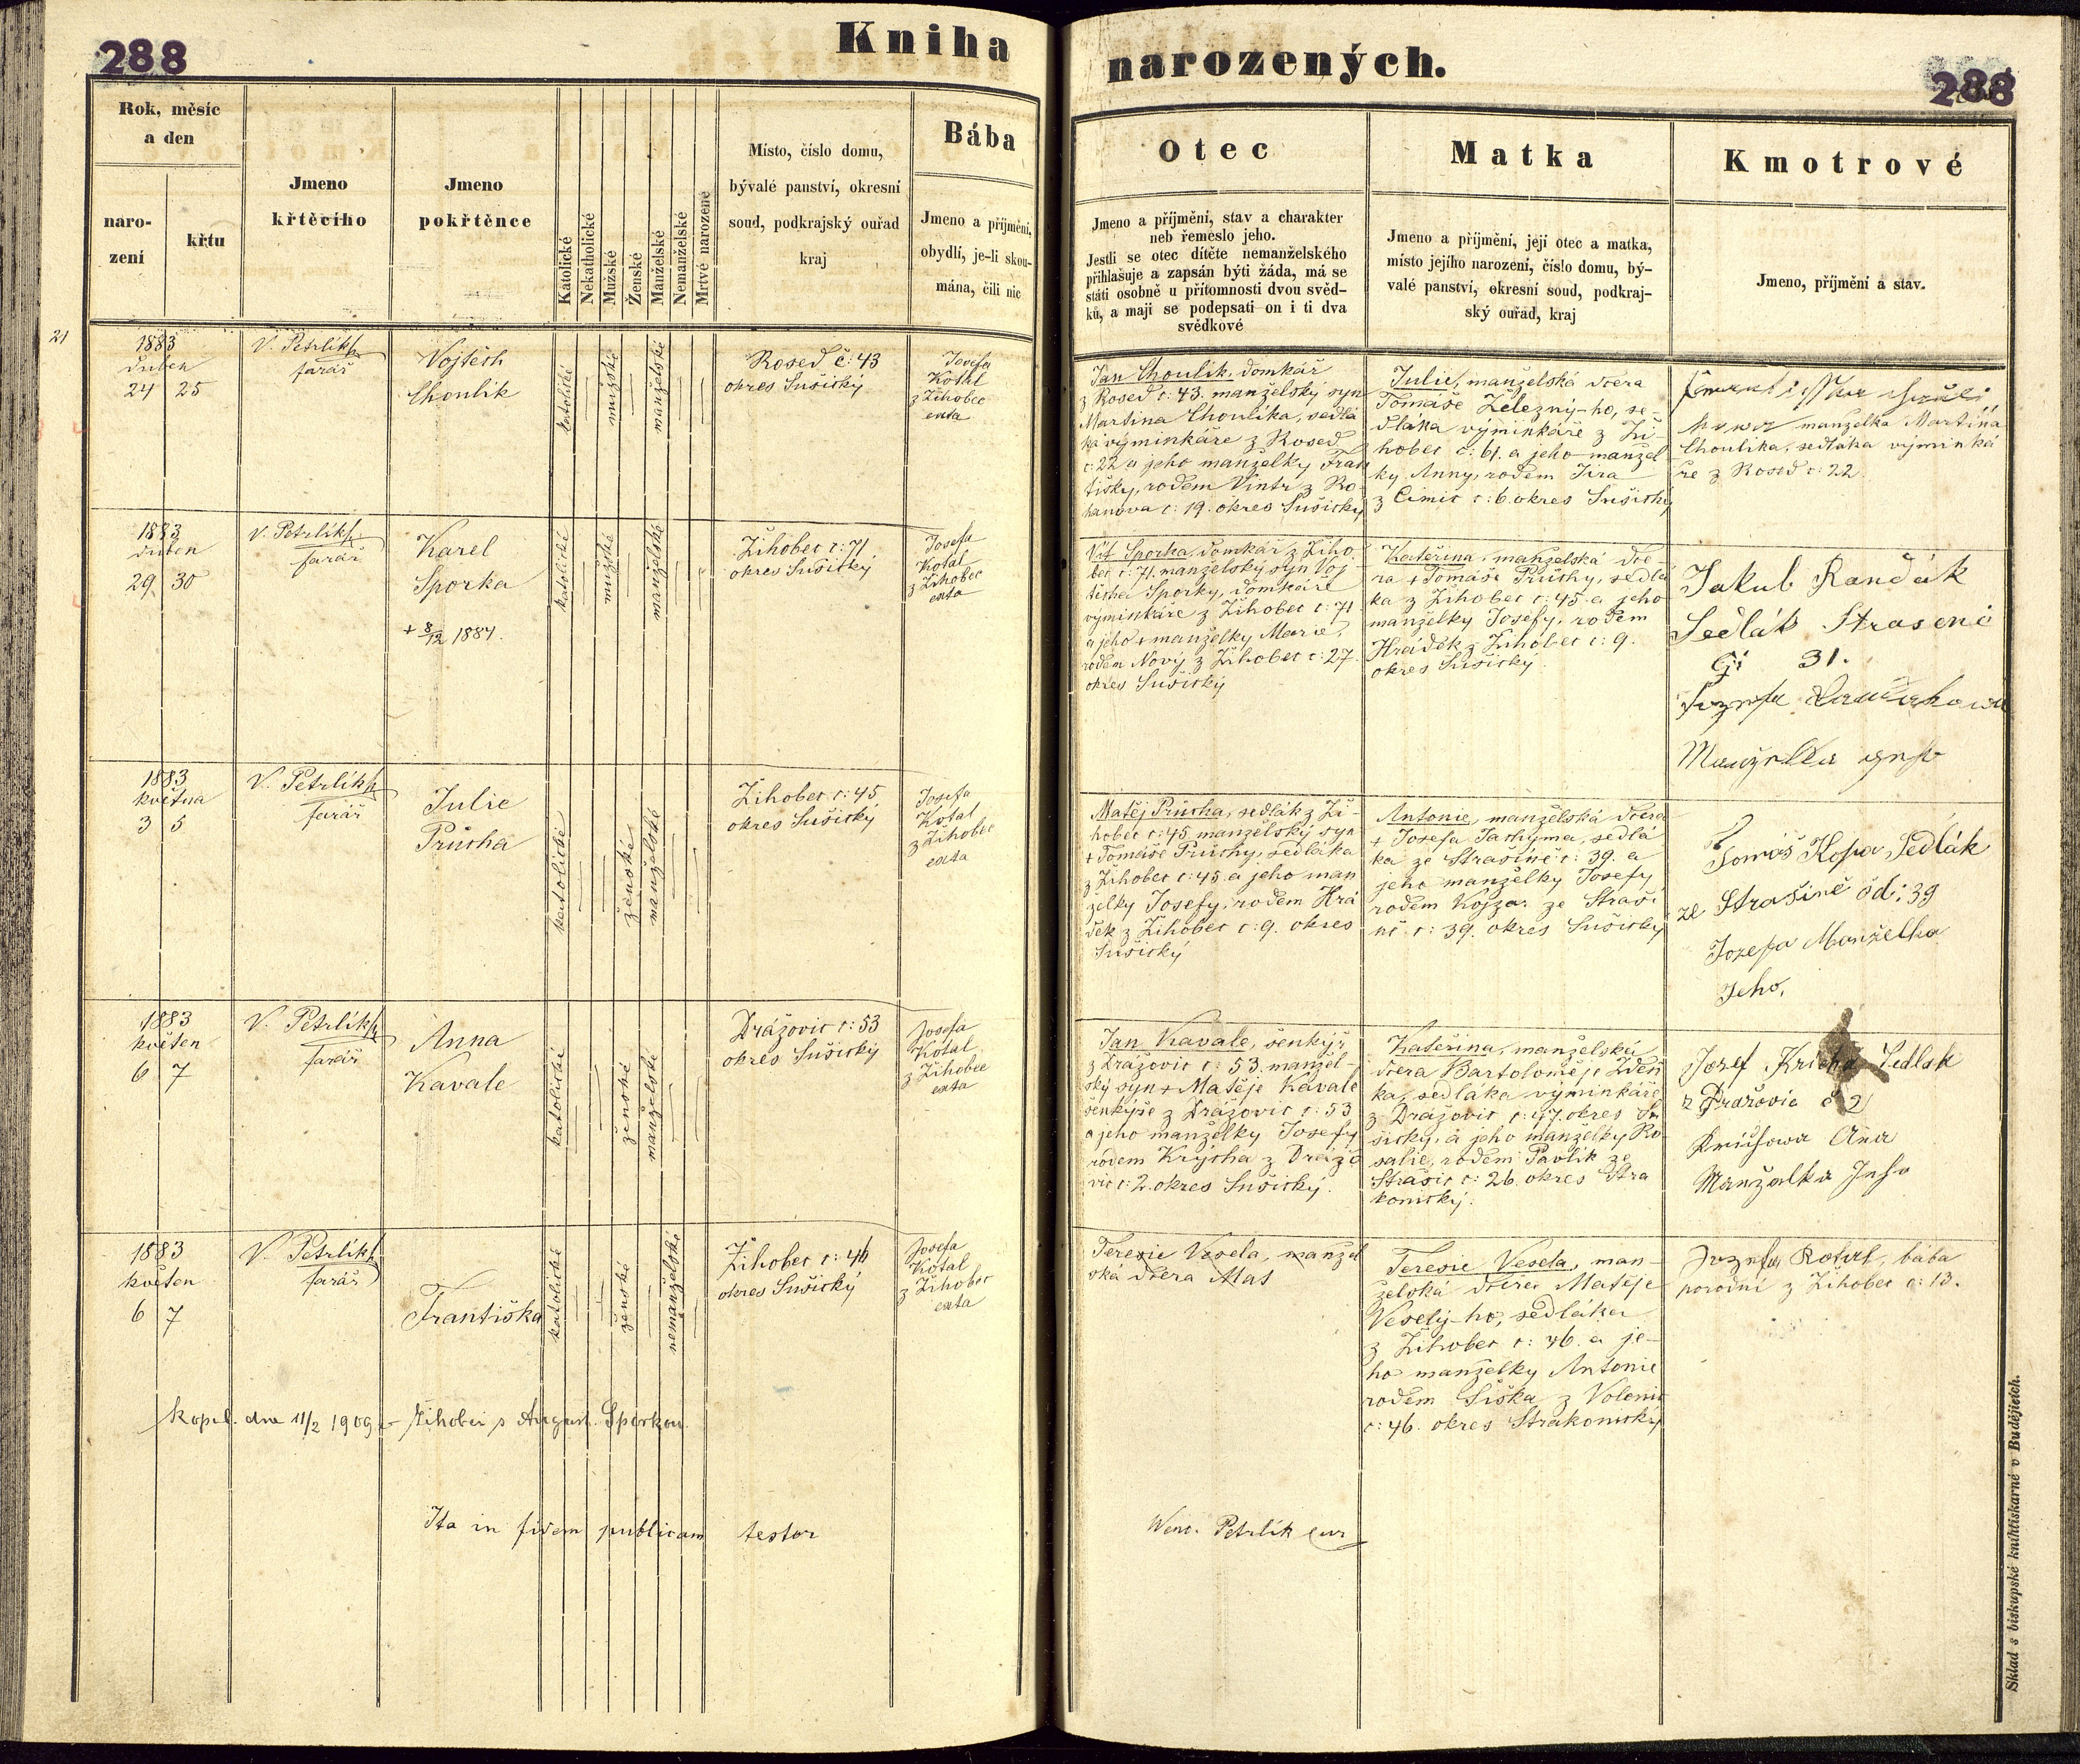 288
Kniha
narozených.
288
Rok, měsíc
a den
naro-
zení
křtu
Jmeno
křtěcího
Jmeno
pokřtěnce
Katolické
Nekatholické
Mužské
Ženské
Manželské
Nemanželské
Mrtvě narozené
Místo, číslo domu,
bývalé panství, okresní
soud, podkrajský ouřad
kraj
Bába
Jmeno a příjmění,
obydlí, je-li skou-
mána, čili nic
Otec
Jmeno a příjmění, stav a charakter
neb řemeslo jeho.
Jestli se otec dítěte nemanželského
přihlašuje a zapsán býti žáda, má se
státi osobně u přítomnosti dvou svěd-
ků, a mají se podepsati on i ti dva
svědkové
Matka
Jmeno a příjmění, její otec a matka,
místo jejího narození, číslo domu, bý-
valé panství, okresní soud, podkraj-
ský ouřad, kraj
Kmotrové
Jmeno, příjmění a stav.
21
1883
duben
24 25
V. Petrlík
farář
Vojtěch
Choulík
katolické
mužské
manželské
Rosed č: 43
okres Sušický
Josefa
Kotal
z Žihobec
exta
Jan Choulík, domkář
z Rosed č: 43. manželský syn
Martina Choulíka, sedlá
ka výminkáře z Rosed
č: 22 a jeho manželky Fran
tišky, rodem Vintr z Ro-
hanova č: 19. okres Sušický
Julie, manželská dcera
Tomáše Železný-ho, se-
dláka výminkáře z Ži-
hobec č: 61. a jeho manžel
ky Anny, rodem Jíra
z Čimic č: 6. okres Sušický
manželka Martina
Choulíka, sedláka výminká
ře z Rosed č: 22.
1883
duben
29 30
V. Petrlík
farář
Karel
Sporka
+ 8/12 1884.
katolické
mužské
manželské
Žihobec č: 71
okres Sušický
Josefa
Kotal
z Žihobec
exta
Vít Sporka, domkář z Žiho
bec č: 71. manželský syn Voj-
těcha Sporky, domkáře
výminkáře z Žihobec č: 71
a jeho + manželky Marie,
rodem Nový z Žihobec č: 27.
okres Sušický
Kateřina, manželská dce-
ra + Tomáše Průchy, sedlá
ka z Žihobec č: 45. a jeho
manželky Josefy, rodem
Hrádek z Žihobec č: 9.
okres Sušický.
Jakub Randák
Sedlák Strasené
31.
Manželka
1883
května
3 5
V. Petrlík
farář
Julie
Průcha
katolické
ženské
manželské
Žihobec č: 45
okres Sušický
Josefa
Kotal
z Žihobec
exta
Matěj Průcha, sedlák z Ži-
hobec č: 45 manželský syn
+ Tomáše Průchy, sedláka
z Žihobec č: 45. a jeho man
želky Josefy, rodem Hrá
dek z Žihobec č: 9. okres
Sušický
Antonie, manželská dcera
+ Josefa Jachyma, sedlá
ka ze Strašíně č: 39. a
jeho manželky Josefy
rodem Kojzar ze Straší
ně č: 39. okres Sušický
Tomáš Kopa Sedlák
ze Strašíně čd: 39
Jozefa Manželka
Jeho,
1883
květen
6 7
V. Petrlík
farář
Anna
Kavale
katolické
ženské
manželské
Dražovic č: 53
okres Sušický
Josefa
Kotal
z Žihobec
exta
Jan Kavale, šenkýř
z Dražovic č: 53. manžel-
ský syn + Matěje Kavale
šenkýře z Dražovic č: 53
a jeho manželky Josefy
rodem Krýcha z Dražo
vic č: 2. okres Sušický.
Kateřina, manželská
dcera Bartoloměje Zdeň
ka, sedláka výminkáře
z Dražovic č: 47. okres Su
šický, a jeho manželky Ro-
salie, rodem Pavlík ze
Strašic č: 26. okres Stra
konický.
Jozef Kricha Sedlak
z Dražovic č 2
Ana
Manželka Jeho
1883
květen
6 7
V. Petrlík
farář
Františka
katolické
ženské
nemanželské
Žihobec č: 46
okres Sušický
Josefa
Kotal
z Žihobec
exta
Terezie Vesela, manžel
ská dcera Mat
Terezie Vesela, man-
želská dcera Matěje
Veselý-ho, sedláka
z Žihobec č: 46. a je-
ho manželky Antonie
rodem Šiška z Volenic
č: 46. okres Strakonický
Kotal, bába
porodní z Žihobec č: 13.
kopul. dne 11/2 1909 v Žihobci s August. Sporkou
Ita in fidem publicam testor
Wenc. Petrlík cur
Sklad s biskupské knihtiskárně v Budějicích.